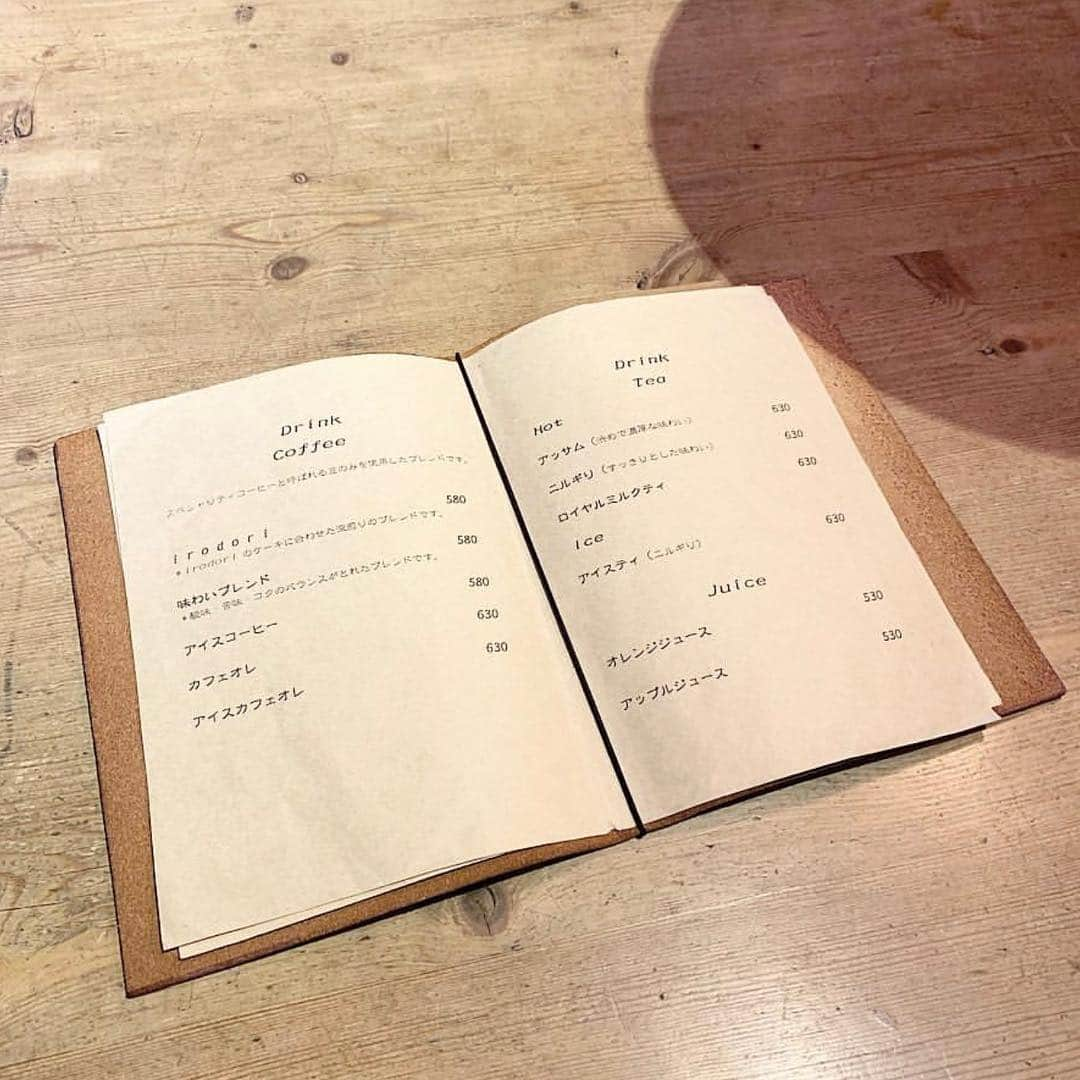 Drink
Coffee
スペシャリティコーヒーと呼ばれる豆のみを使用したブレンドです。
irodori 580
*irodoriのケーキに合わせた深煎りのブレンドです。
味わいブレンド 580
*酸味 苦味 コクのバランスがとれたブレンドです。
アイスコーヒー 580
カフェオレ 630
アイスカフェオレ 630
Drink
Tea
Hot
アッサム(渋めで濃厚な味わい) 630
ニルギリ(すっきりとした味わい) 630
ロイヤルミルクティ 630
Ice
アイスティ(ニルギリ) 630
Juice
オレンジジュース 530
アップルジュース 530